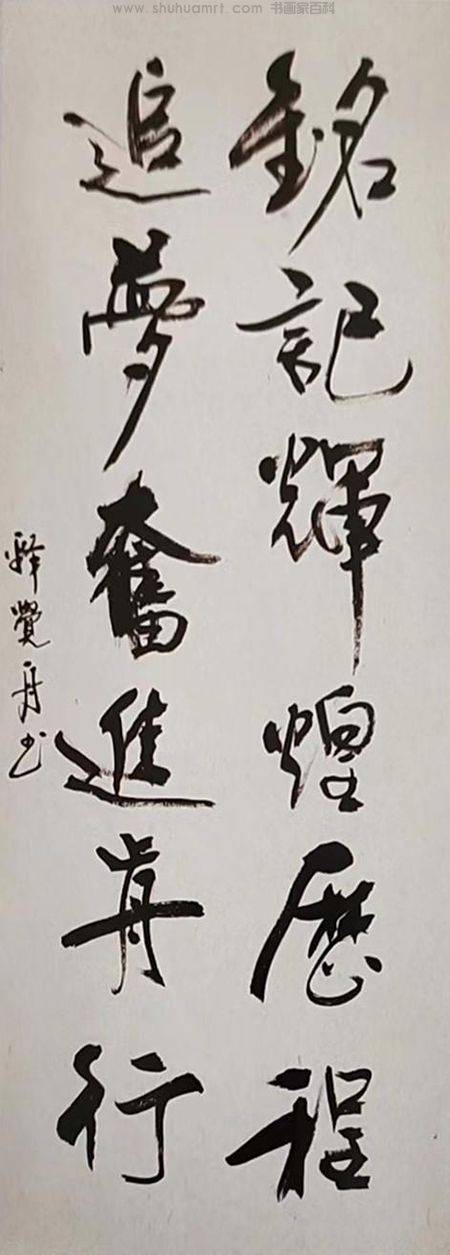 www.shuhuamrt.com 书画家百科
銘記輝煌歷程
追夢奮進歬行
釋覺舟书